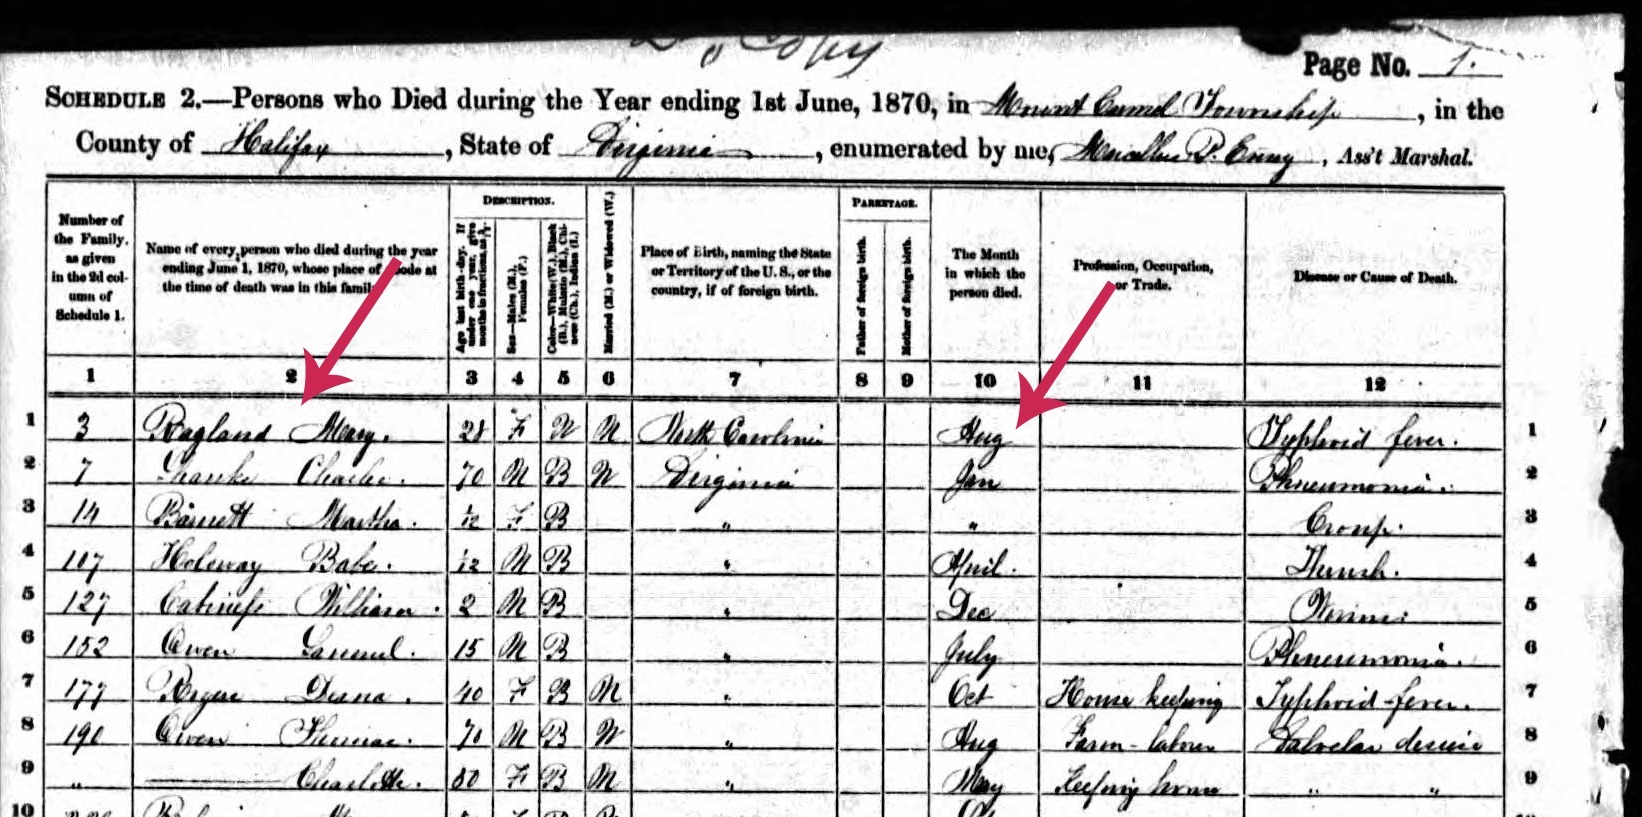 Copy
Page No. 1.
SCHEDULE 2.—Persons who Died during the Year ending 1st June, 1870, in Mount Carmel Township, in the
County of Halifax, State of Virginia, enumerated by me, Marcellus P. , Ass't Marshal.
Number of the Family, as given in the 2d column of Schedule 1.
Name of every person who died during the year ending June 1, 1870, whose place of abode at the time of death was in this family.
DESCRIPTION.
Age last birth-day. If under one year, give months in fractions, as
Sex—Males (M.), Females (F.)
Color—White (W.), Black (B.), Mulatto (M.), Chinese (Ch.), Indian (I.)
Married (M.) or Widowed (W.)
Place of Birth, naming the State or Territory of the U. S., or the country, if of foreign birth.
PARENTAGE.
Father of foreign birth.
Mother of foreign birth.
The Month in which the person died.
Profession, Occupation, or Trade.
Disease or Cause of Death.
1 2 3 4 5 6 7 8 9 10 11 12
1 3 Ragland Mary. 28 F W M North Carolina Aug Typhoid fever. 1
2 7 Charles. 70 M B W Virginia Jan Phneumonia. 2
3 14 Barnett Martha. 1/12 F B " " Croup. 3
4 107 Holoway Babe. 1/12 M B " April. 4
5 127 Cabiness William. 2 M B " Dec Worms. 5
6 152 Owen Samuel. 15 M B " July Phneumonia. 6
7 177 Diana. 40 F B M " Oct House keeping Typhoid-fever. 7
8 190 Owen 70 M B W " Aug Farm-laborer 8
9 " —— Charlotte. 80 F B M " May Keeping house " " 9
10